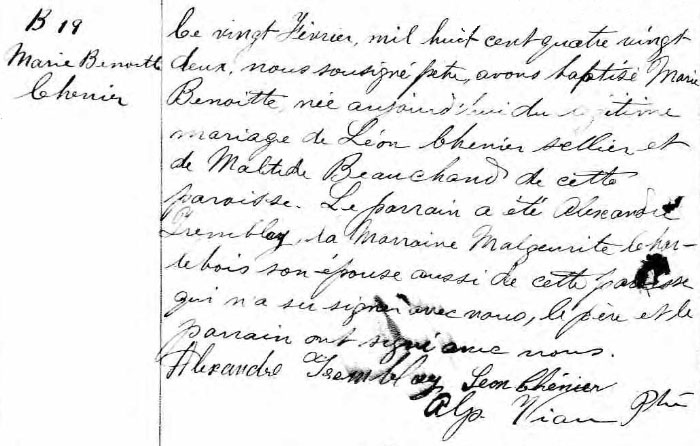 B 19
Marie Benoitte
Chenier
Ce vingt Février, mil huit cent quatre vingt
deux, nous sousigné ptre, avons baptisé Marie
Benoitte, née aujourd'hui du légitime
mariage de Léon Chenier sellier et
de Maltide Beauchand de cette
paroisse. Le parrain a été Alexandre
Trembley, la Marraine Malgeurite Char-
lebois son épouse aussi de cette paroisse
qui n'a su signer avec nous, le père et le
parrain ont signé avec nous.
Alexandre Trembley Leon Chénier
Alp. Viau Ptre